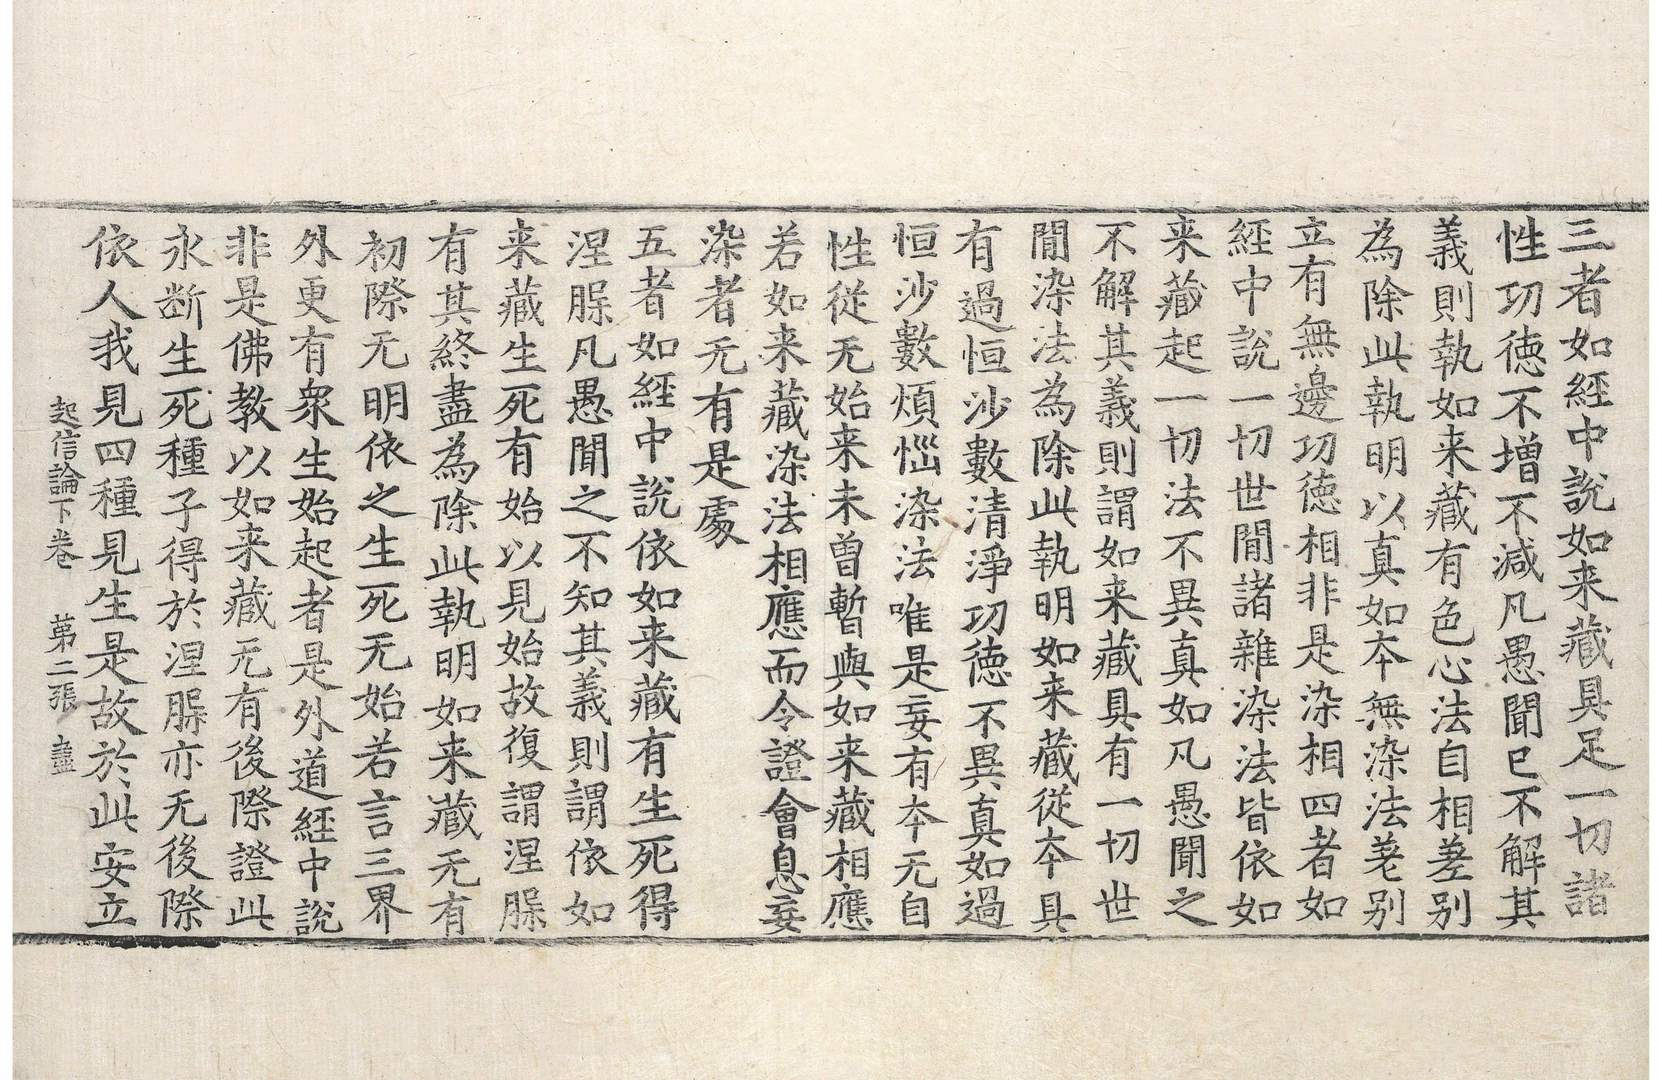 三者如經中說如来藏具足一切諸
性功徳不增不減凡愚聞已不解其
義則執如来藏有色心法自相差别
為除此執明以真如夲無染法差别
立有無邊功徳相非是染相四者如
經中說一切世間諸雜染法皆依如
来藏起一切法不異真如凡愚聞之
不解其義則謂如来藏具有一切世
間染法為除此執明如来藏從夲具
有過恒沙數清淨功徳不異真如過
恒沙數煩惱染法唯是妄有夲无自
性從无始来未曾暫與如来藏相應
若如来藏染法相應而令證會息妄
染者无有是處
五者如經中說依如来藏有生死得
涅槃凡愚聞之不知其義則謂依如
来藏生死有始以見始故復謂涅槃
有其終盡為除此執明如来藏无有
初際无明依之生死无始若言三界
外更有衆生始起者是外道經中說
非是佛教以如来藏无有後際證此
永断生死種子得於涅槃亦无後際
依人我見四種見生是故於此安立
起信論下卷 苐二張 盡